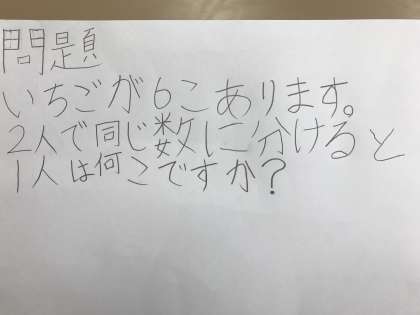 問題
いちごが6こあります。
2人で同じ数に分けると
1人は何こですか?